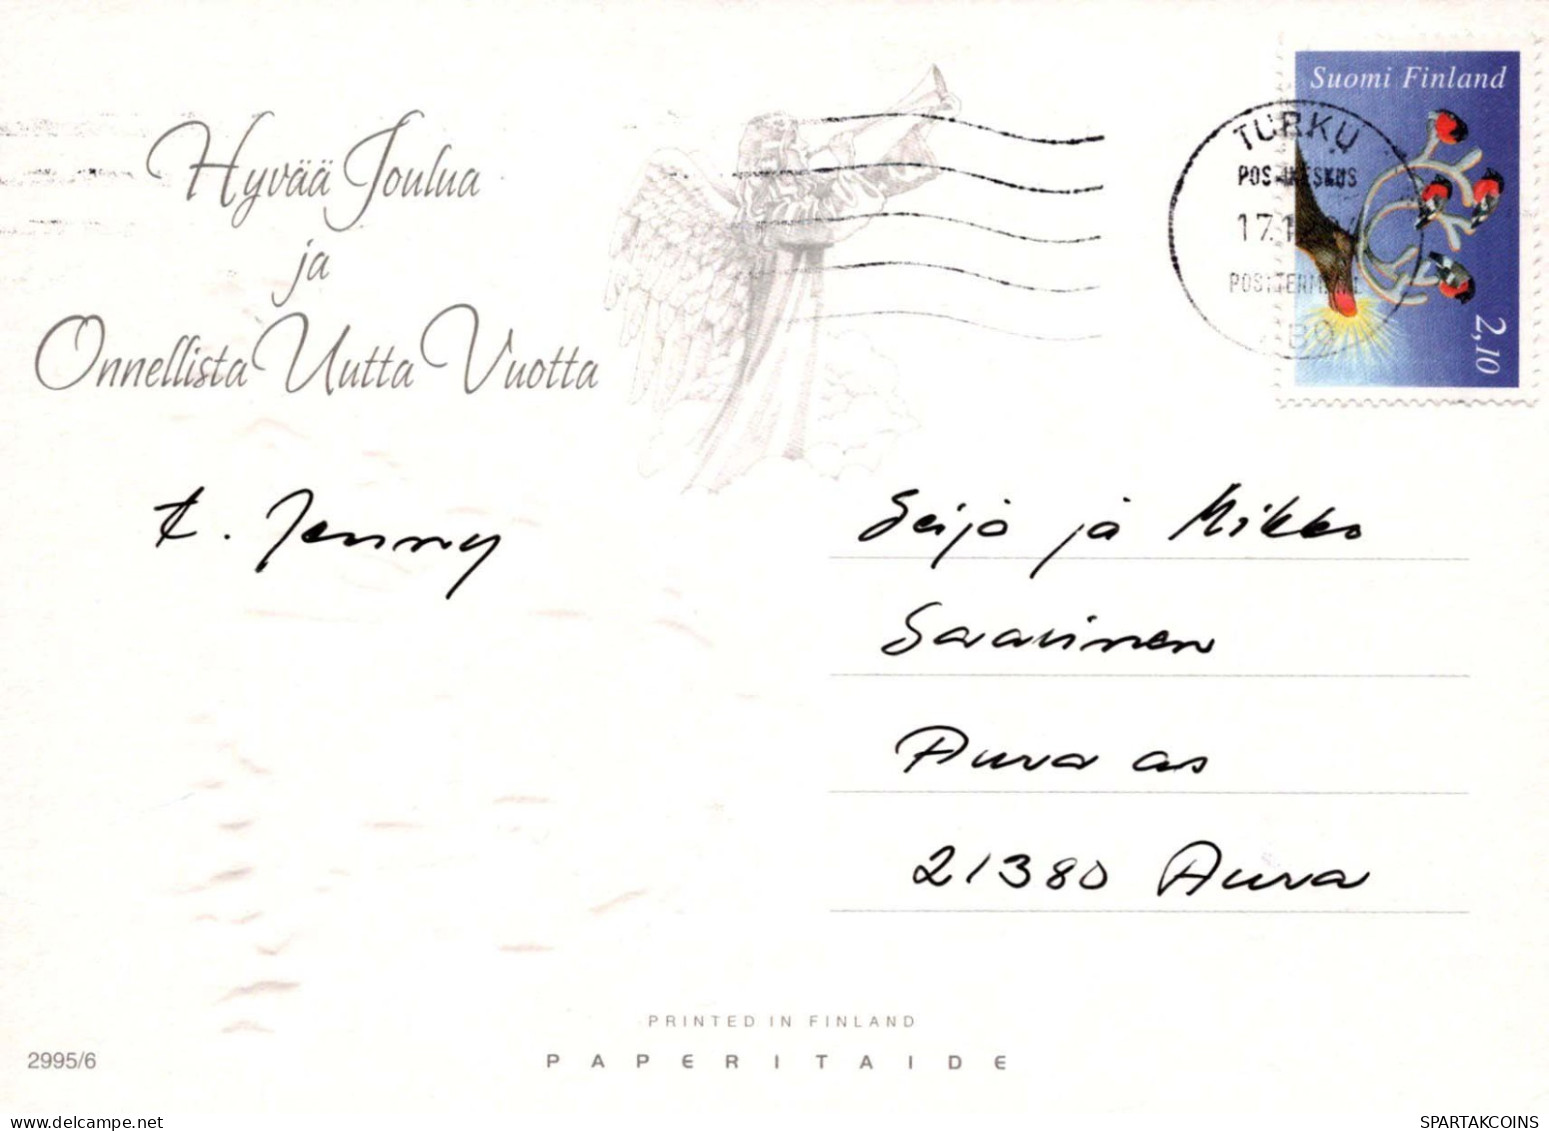 Hyvää Joulua
ja
Onnellista Uutta Vuotta
Suomi Finland
2,10
TURKU
POSTIKESKUS
17.1
POSTTERMINAL
t. Jenny
Seija ja Mikko
Saarinen
Aura as
21380 Aura
PRINTED IN FINLAND
2995/6
PAPERITAIDE
SPARTAKCOINS